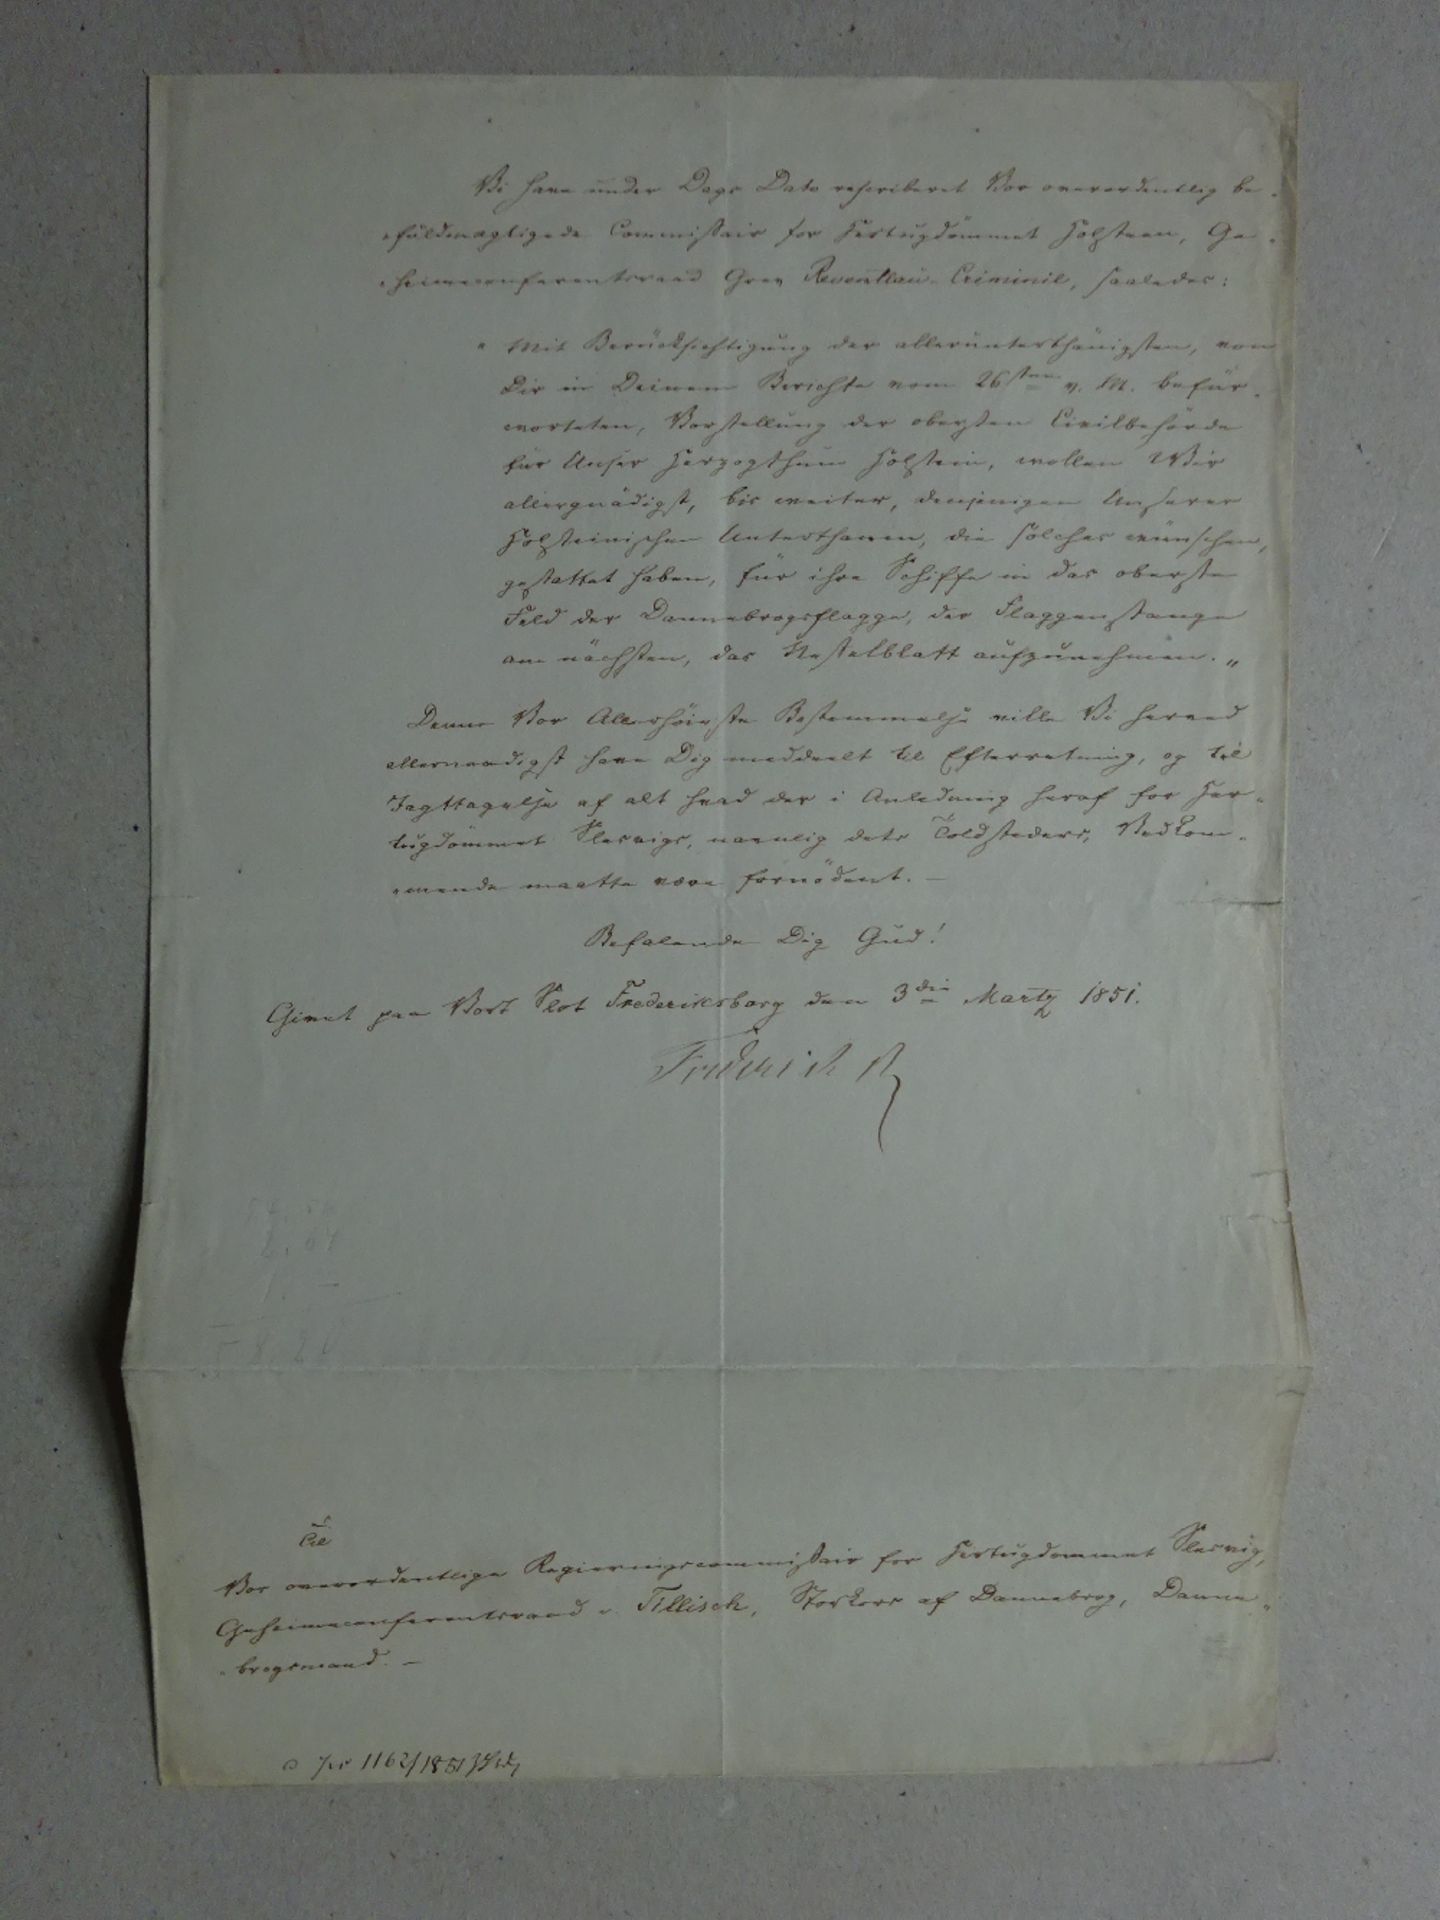 Vi have under Dags Dato rescriberet Vor overordentlig be-
fuldmægtigede Commissair for Hertugdömmet Holsteen, Ge-
heimeconferentsraad Grev Reventlau-Criminil, saaledes:
"Mit Berücksichtigung der allerunterthänigsten, von
Dir in Deinem Berichte vom 26sten v. M. befür-
worteten, Vorstellung der obersten Civilbehörde
für Unser Herzogthum Holstein, wollen Wir
allergnädigst, bis weiter, denjenigen Unserer
Holsteinischen Unterthanen, die solches wünschen,
gestattet haben, für ihre Schiffe in das oberste
Feld der Dannebrogsflagge, der Flaggenstange
am nächsten, das Nesselblatt aufzunehmen."
Denne Vor Allerhöieste Bestemmelse ville Vi herved
allernaadigst have Dig meddeelt til Efterretning, og til
Iagttagelse af alt hvad der i Anledning heraf for Her-
tugdömmet Slesvigs, navnlig dets Toldsteders, Vedkom-
mende maatte være fornödent. —
Befalende Dig Gud!
Givet paa Vort Slot Frederiksborg den 3die Martz 1851.
Frederik R
Til
Vor overordentlige Regieringscommissair for Hertugdommet Slesvig,
Geheimeconferentsraad v. Tillisch, Storkors af Dannebrog, Danne-
brogsmand. —
1162/1851